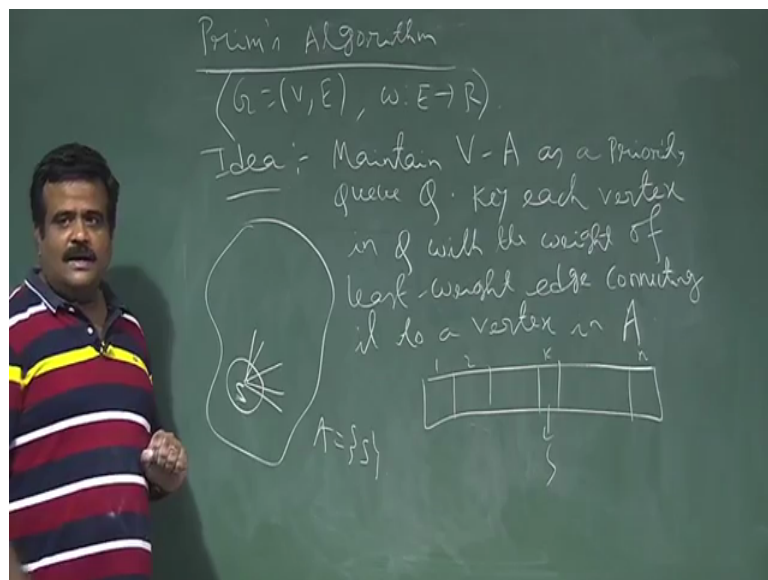 Prim's Algorithm
(G=(V,E), w: E→R).
Idea:- Maintain V-A as a Priority
Queue Q. Key each vertex
in Q with the weight of
least-weight edge connecting
it to a vertex in A
1 2 K n
S
A={S}